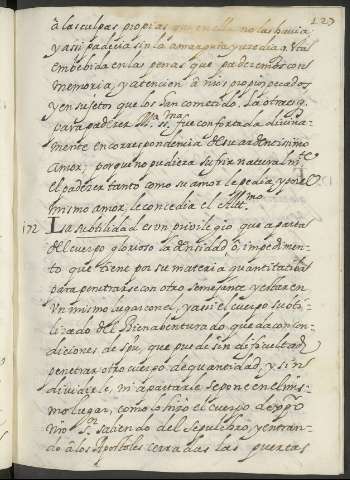 127
à las culpas proprias que en ella no las havia;
y assi padecia sin la amargura y azedia q. està
embebida en las penas que padezemos con
memoria, y atencion à nrôs proprios pecados
y en sujetos que los han cometido. La otra es q.
para padezer M.ª SS.ma fue confortada divina-
mente en correspondencia de su ardentissimo
Amor; porque no pudiera sufrir natural m.te
el padezer tanto como su amor le pedia, y por el
mismo amor le concedia el Alt.mo
172 La subtilidad es un privilegio que aparta
del cuerpo glorioso la densidad ò impedimen-
to que tiene por su materia quantitativa
para penetrarse con otro semejante y estar en
un mismo lugar con el, y assi el cuerpo subti-
lizado del Bienabenturado queda con con-
diciones de spu, que puede sin dificultad
penetrar otro cuerpo de quantidad, y sin
dividirle, ni apartarle se pone en el mis-
mo lugar, como lo hizo el cuerpo de xpô
nrô S.or saliendo del sepulcro, y entran-
do à los Apostoles cerradas las puertas